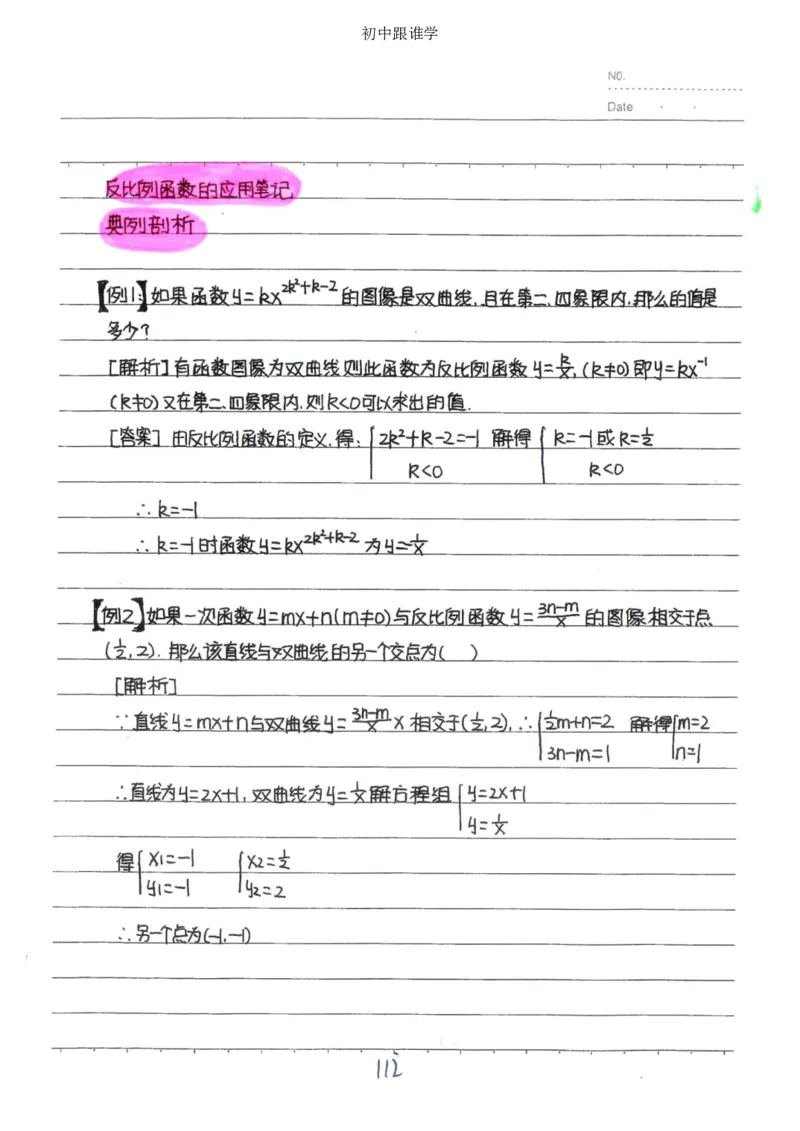 初中跟谁学
NO.
Date
反比例函数的应用笔记
典例剖析
【例1:】如果函数y=kx^{2k²+k-2}的图像是双曲线,且在第二、四象限内,那么的值是
多少?
[解析]有函数图像为双曲线则此函数为反比例函数y=k/x,(k≠0)即y=kx⁻¹
(k≠0)又在第二、四象限内,则k<0可以求出的值.
[答案] 由反比例函数的定义,得: {2k²+k-2=-1 解得 {k=-1或k=1/2
k<0 k<0
∴k=-1
∴k=-1时函数y=kx^{2k²+k-2}为y=-1/x
【例2】如果一次函数y=mx+n(m≠0)与反比例函数y=(3n-m)/x的图像相交于点
(1/2,2). 那么该直线与双曲线的另一个交点为( )
[解析]
∵直线y=mx+n与双曲线y=(3n-m)/x x 相交于(1/2,2),∴{1/2m+n=2 解得{m=2
3n-m=1 n=1
∴直线为y=2x+1,双曲线为y=1/x解方程组{y=2x+1
y=1/x
得{x1=-1 {x2=1/2
y1=-1 y2=2
∴另一个点为(-1,-1)
112